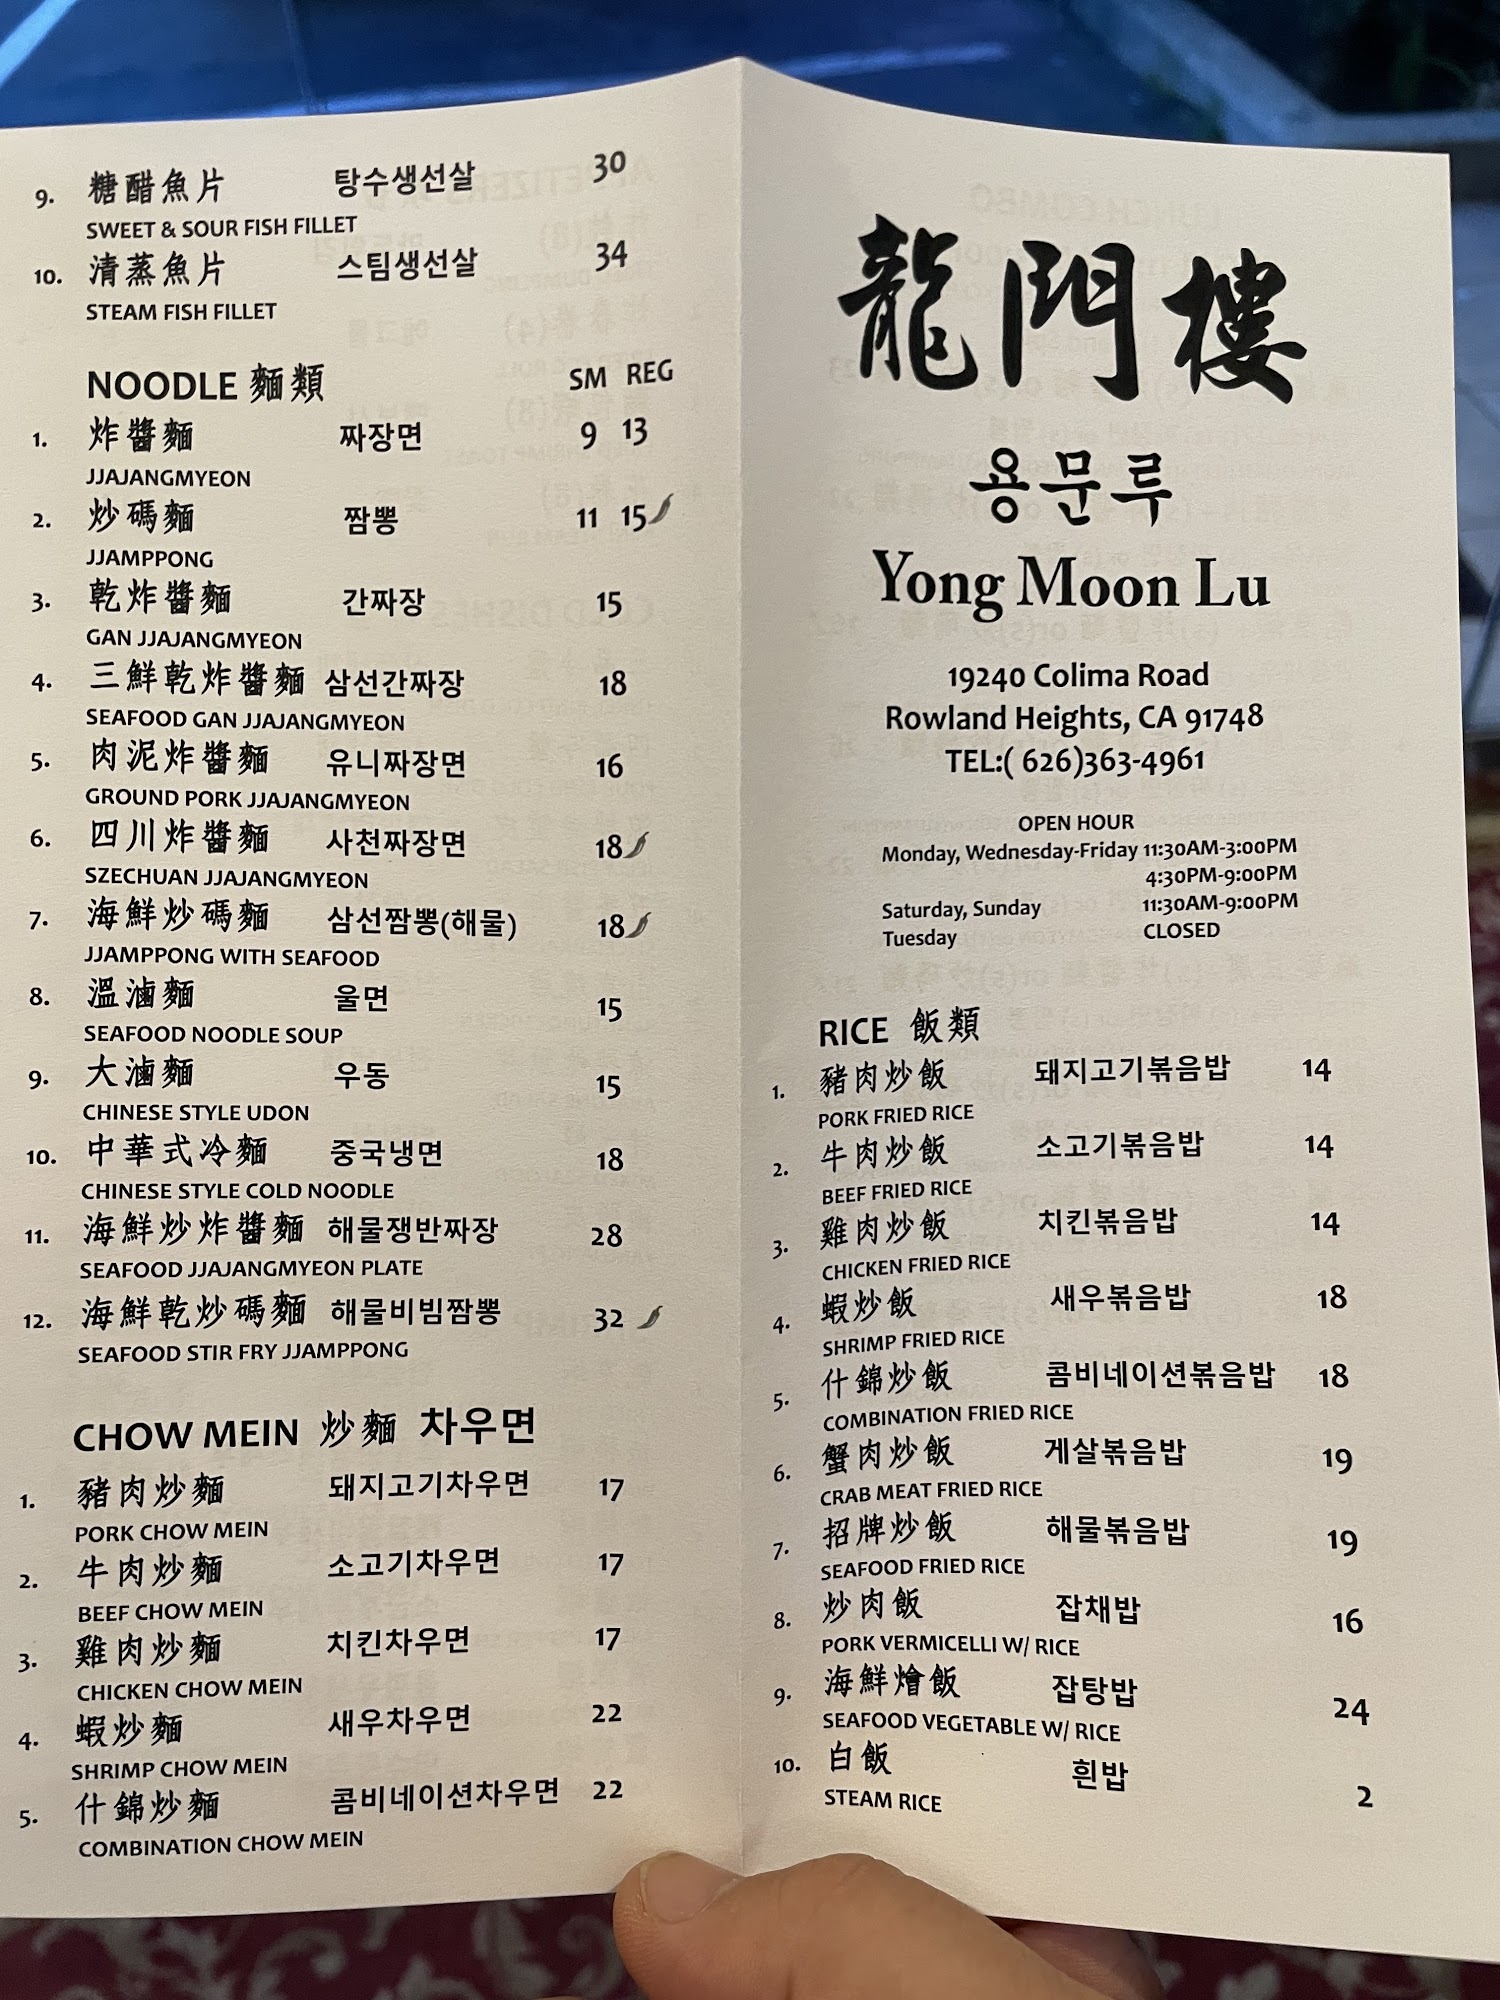 9. 糖醋魚片 탕수생선살 30
SWEET & SOUR FISH FILLET
10. 清蒸魚片 스팀생선살 34
STEAM FISH FILLET
NOODLE 麵類 SM REG
1. 炸醬麵 짜장면 9 13
JJAJANGMYEON
2. 炒碼麵 짬뽕 11 15
JJAMPPONG
3. 乾炸醬麵 간짜장 15
GAN JJAJANGMYEON
4. 三鮮乾炸醬麵 삼선간짜장 18
SEAFOOD GAN JJAJANGMYEON
5. 肉泥炸醬麵 유니짜장면 16
GROUND PORK JJAJANGMYEON
6. 四川炸醬麵 사천짜장면 18
SZECHUAN JJAJANGMYEON
7. 海鮮炒碼麵 삼선짬뽕(해물) 18
JJAMPPONG WITH SEAFOOD
8. 溫滷麵 울면 15
SEAFOOD NOODLE SOUP
9. 大滷麵 우동 15
CHINESE STYLE UDON
10. 中華式冷麵 중국냉면 18
CHINESE STYLE COLD NOODLE
11. 海鮮炒炸醬麵 해물쟁반짜장 28
SEAFOOD JJAJANGMYEON PLATE
12. 海鮮乾炒碼麵 해물비빔짬뽕 32
SEAFOOD STIR FRY JJAMPPONG
CHOW MEIN 炒麵 차우면
1. 豬肉炒麵 돼지고기차우면 17
PORK CHOW MEIN
2. 牛肉炒麵 소고기차우면 17
BEEF CHOW MEIN
3. 雞肉炒麵 치킨차우면 17
CHICKEN CHOW MEIN
4. 蝦炒麵 새우차우면 22
SHRIMP CHOW MEIN
5. 什錦炒麵 콤비네이션차우면 22
COMBINATION CHOW MEIN
龍門樓
용문루
Yong Moon Lu
19240 Colima Road
Rowland Heights, CA 91748
TEL:( 626)363-4961
OPEN HOUR
Monday, Wednesday-Friday 11:30AM-3:00PM
4:30PM-9:00PM
Saturday, Sunday 11:30AM-9:00PM
Tuesday CLOSED
RICE 飯類
1. 豬肉炒飯 돼지고기볶음밥 14
PORK FRIED RICE
2. 牛肉炒飯 소고기볶음밥 14
BEEF FRIED RICE
3. 雞肉炒飯 치킨볶음밥 14
CHICKEN FRIED RICE
4. 蝦炒飯 새우볶음밥 18
SHRIMP FRIED RICE
5. 什錦炒飯 콤비네이션볶음밥 18
COMBINATION FRIED RICE
6. 蟹肉炒飯 게살볶음밥 19
CRAB MEAT FRIED RICE
7. 招牌炒飯 해물볶음밥 19
SEAFOOD FRIED RICE
8. 炒肉飯 잡채밥 16
PORK VERMICELLI W/ RICE
9. 海鮮燴飯 잡탕밥 24
SEAFOOD VEGETABLE W/ RICE
10. 白飯 흰밥 2
STEAM RICE